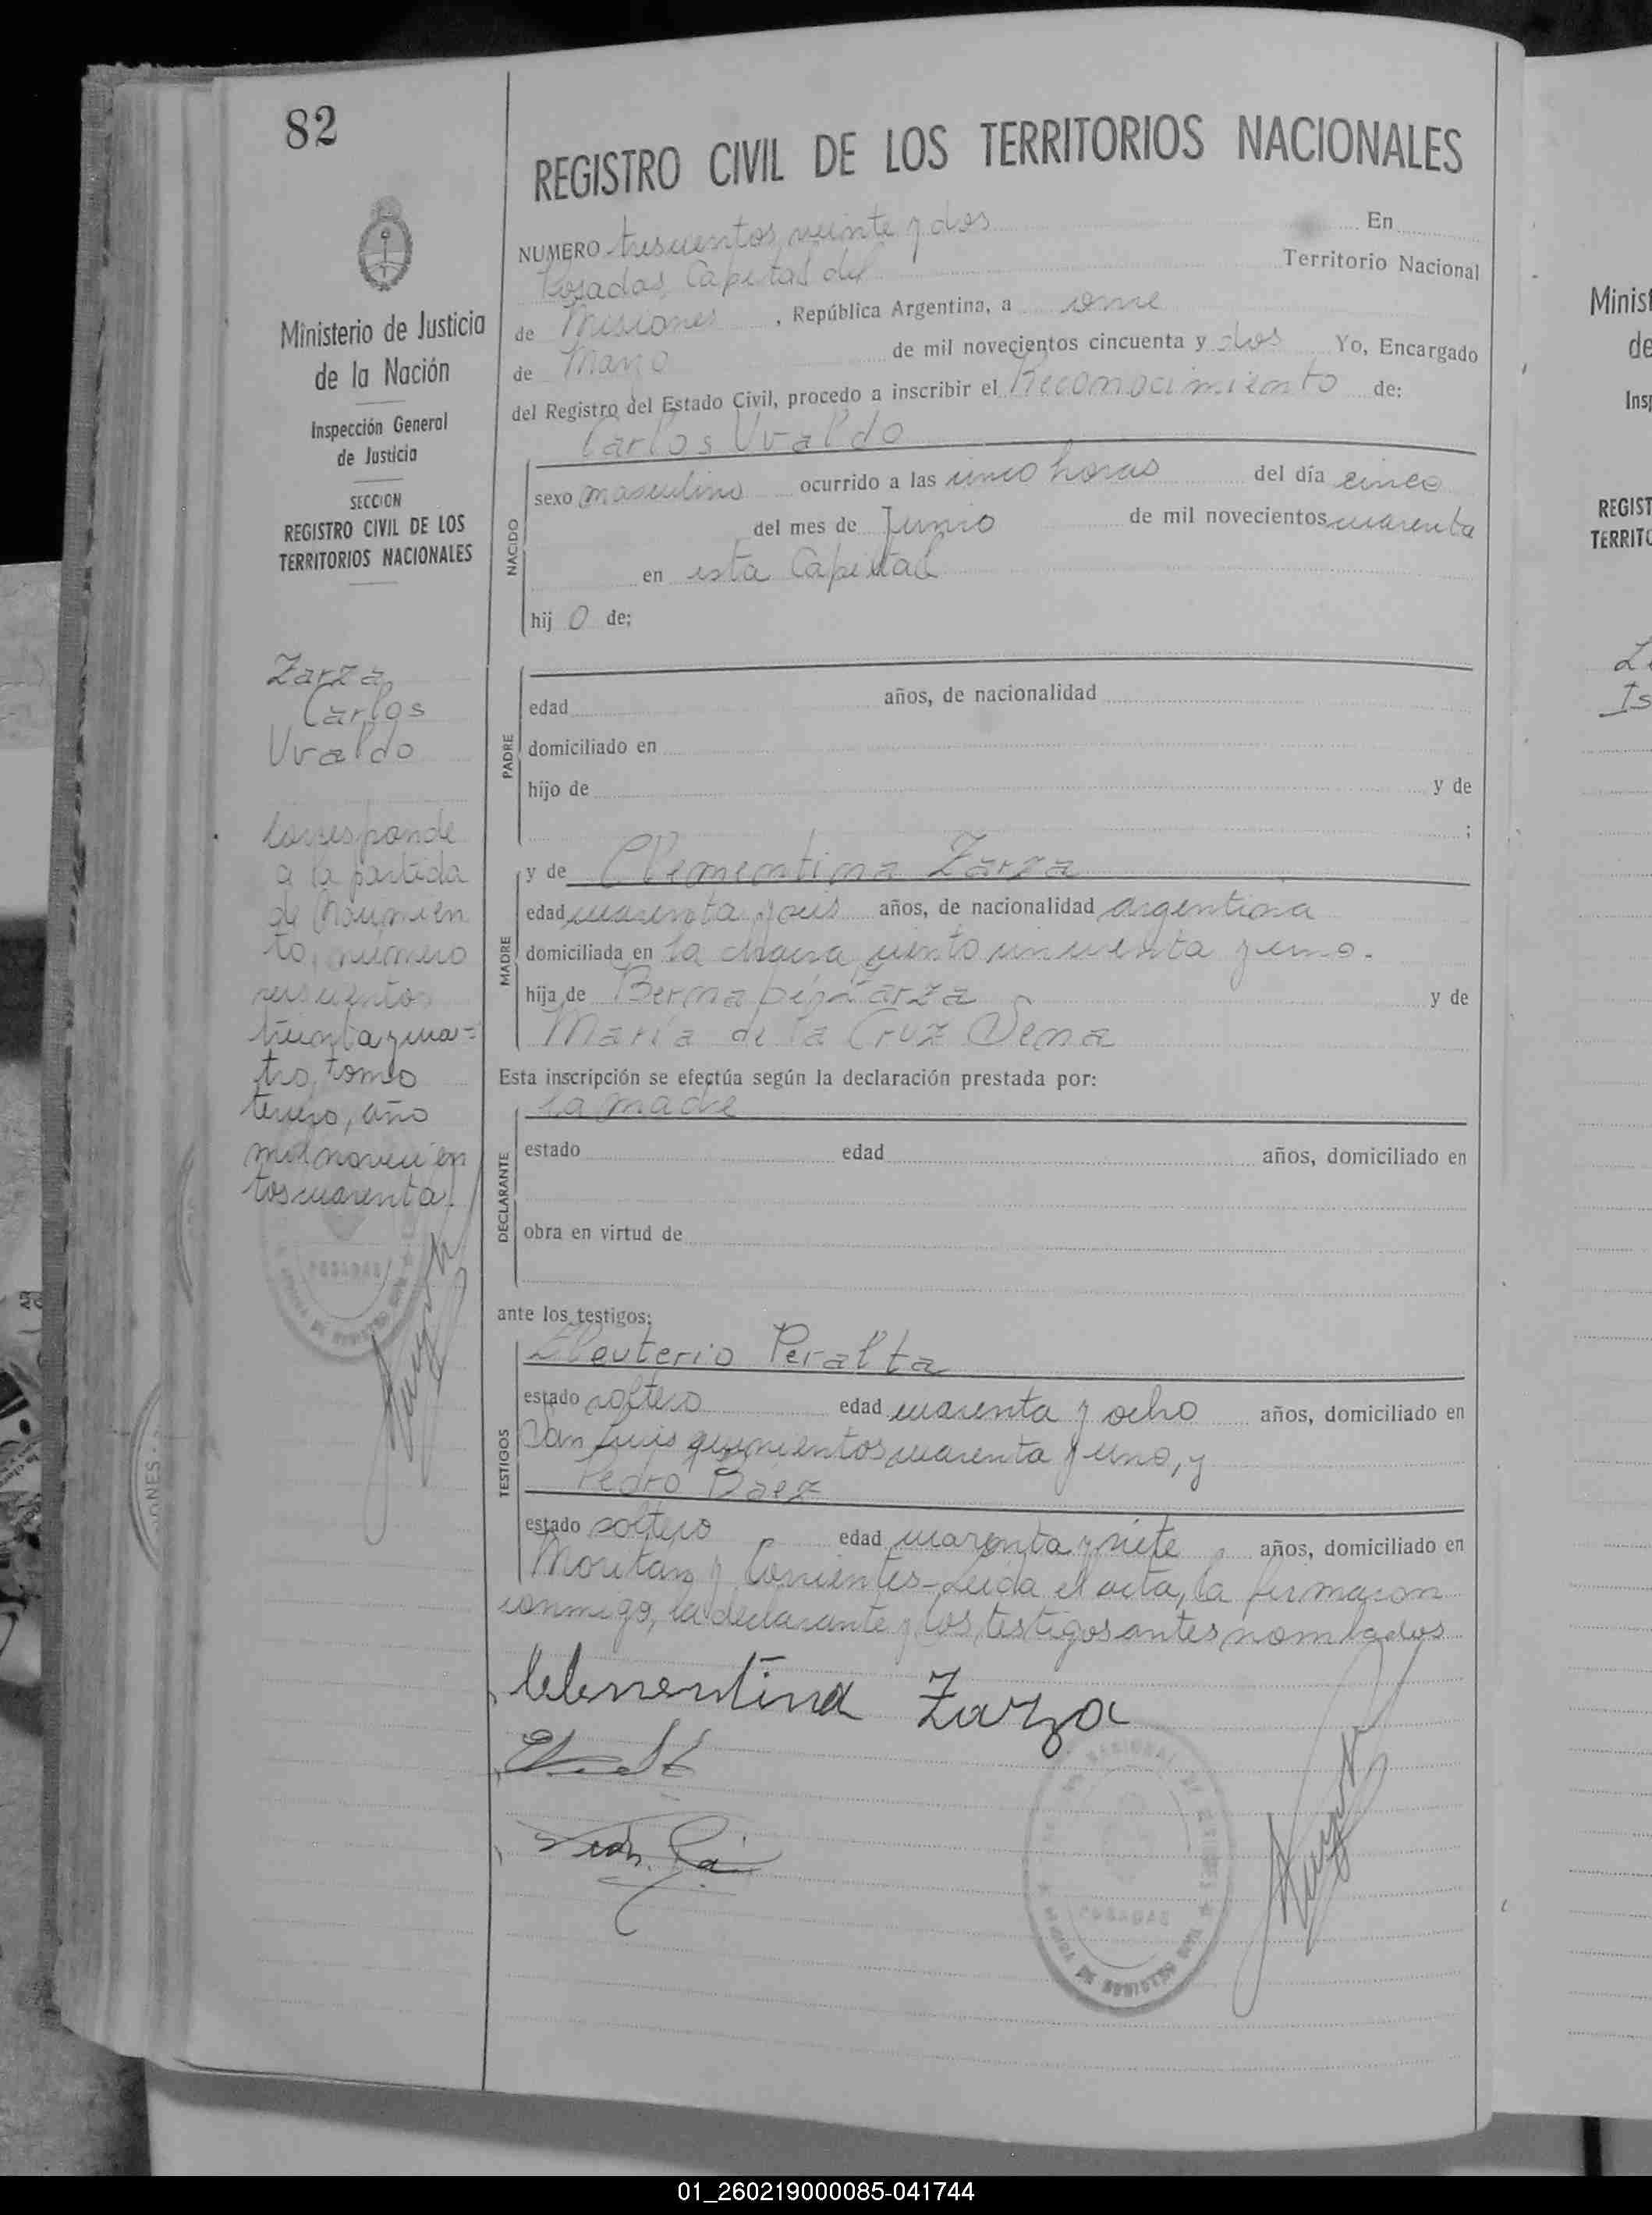 82
Ministerio de Justicia
de la Nación
Inspección General
de Justicia
SECCION
REGISTRO CIVIL DE LOS
TERRITORIOS NACIONALES
Zarza
Carlos
Uvaldo
Corresponde
a la partida
de
to, número
seiscientos
treinta y cua=
tro, tomo
tercero, año
mil novecien
tos cuarenta
POSADAS
REGISTRO CIVIL DE LOS TERRITORIOS NACIONALES
NUMERO trescientos veinte y dos En
Posadas, Capital del Territorio Nacional
de Misiones , República Argentina, a once
de Marzo de mil novecientos cincuenta y dos Yo, Encargado
del Registro del Estado Civil, procedo a inscribir el Reconocimiento de:
Carlos Uvaldo
NACIDO
sexo masculino ocurrido a las cinco horas del día cinco
del mes de Junio de mil novecientos cuarenta
en esta Capital
hij o de:
PADRE
edad años, de nacionalidad
domiciliado en
hijo de y de
;
MADRE
y de Clementina Zarza
edad cuarenta y años, de nacionalidad argentina
domiciliada en la chacra ciento cincuenta y uno.
hija de Bernabé Zarza y de
María de la Cruz Sena
Esta inscripción se efectúa según la declaración prestada por:
la madre
DECLARANTE
estado edad años, domiciliado en
obra en virtud de
ante los testigos:
TESTIGOS
Eleuterio Peralta
estado soltero edad cuarenta y ocho años, domiciliado en
San Luis quinientos cuarenta y uno, y
Pedro Baez
estado soltero edad cuarenta y siete años, domiciliado en
y Corrientes-Leida el acta, la firmaron
conmigo, la declarante y los testigos antes nombrados
Clementina Zarza
POSADAS
Minist
de
Insp
REGIST
TERRITO
01_260219000085-041744